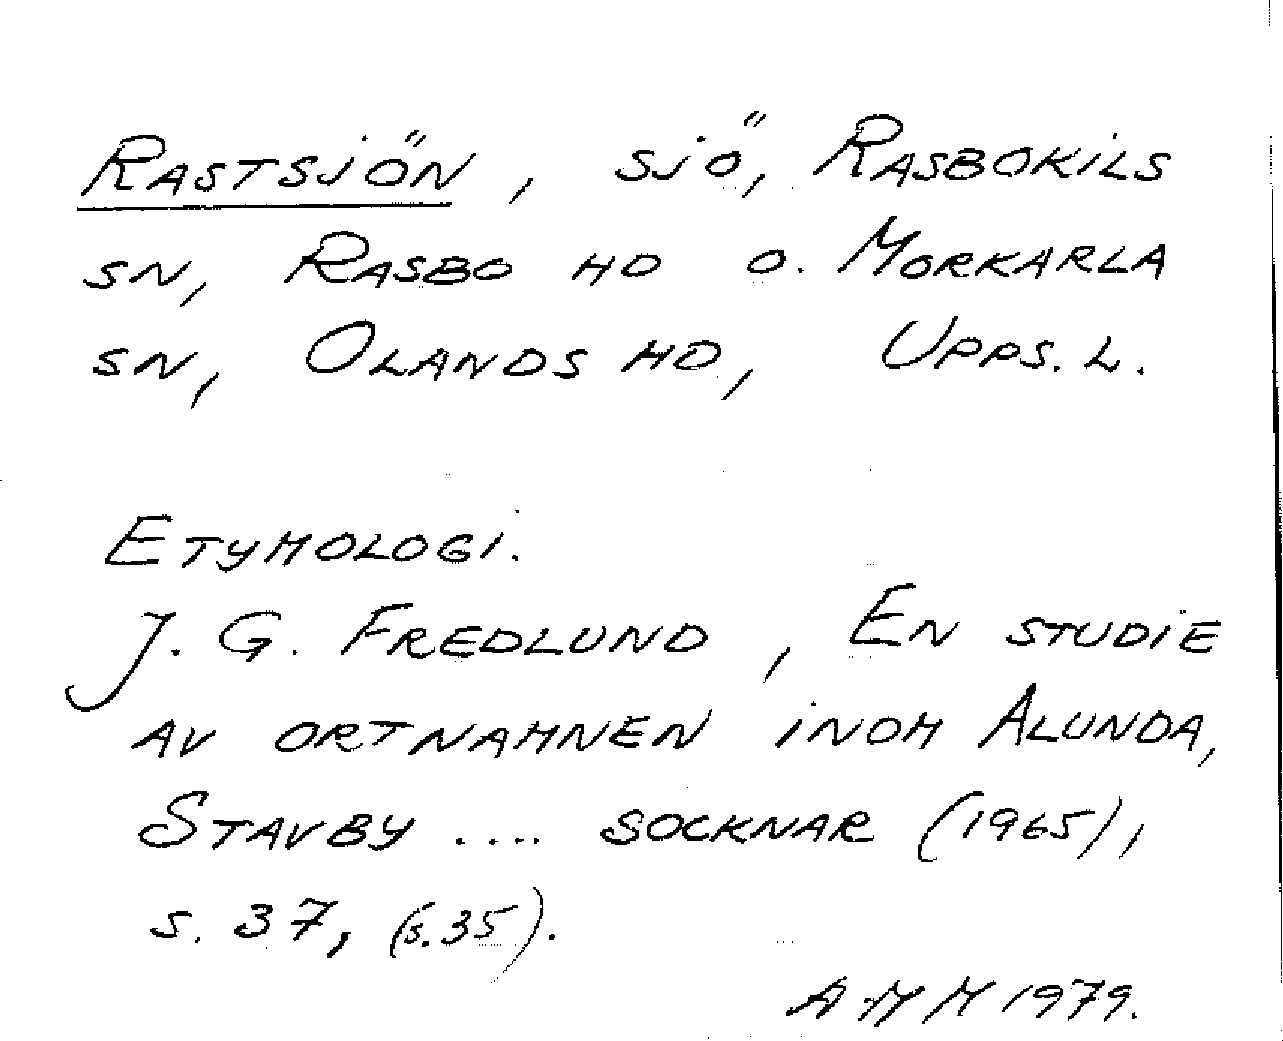 RASTSJÖN, SJÖ, RASBOKILS
SN, RASBO HD O. MORKARLA
SN, OLANDS HD, UPPS. L.
ETYMOLOGI.
J. G. FREDLUND, EN STUDIE
AV ORTNAMNEN INOM ALUNDA,
STAVBY .... SOCKNAR (1965),
S. 37, (S. 35).
AMM 1979.